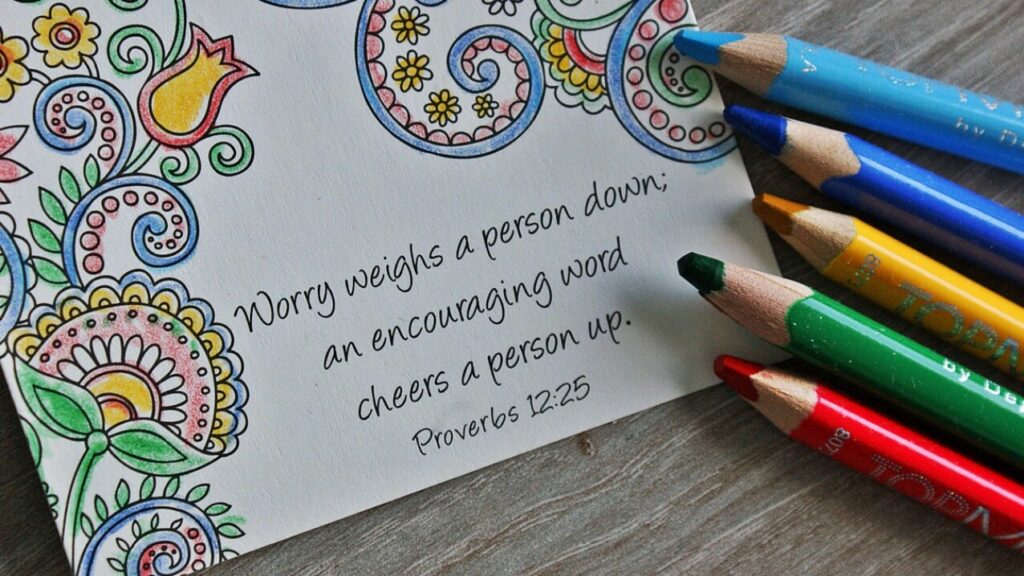 Worry weighs a person down;
an encouraging word
cheers a person up.
Proverbs 12:25
by De
807
TOD
by De
807
TOD